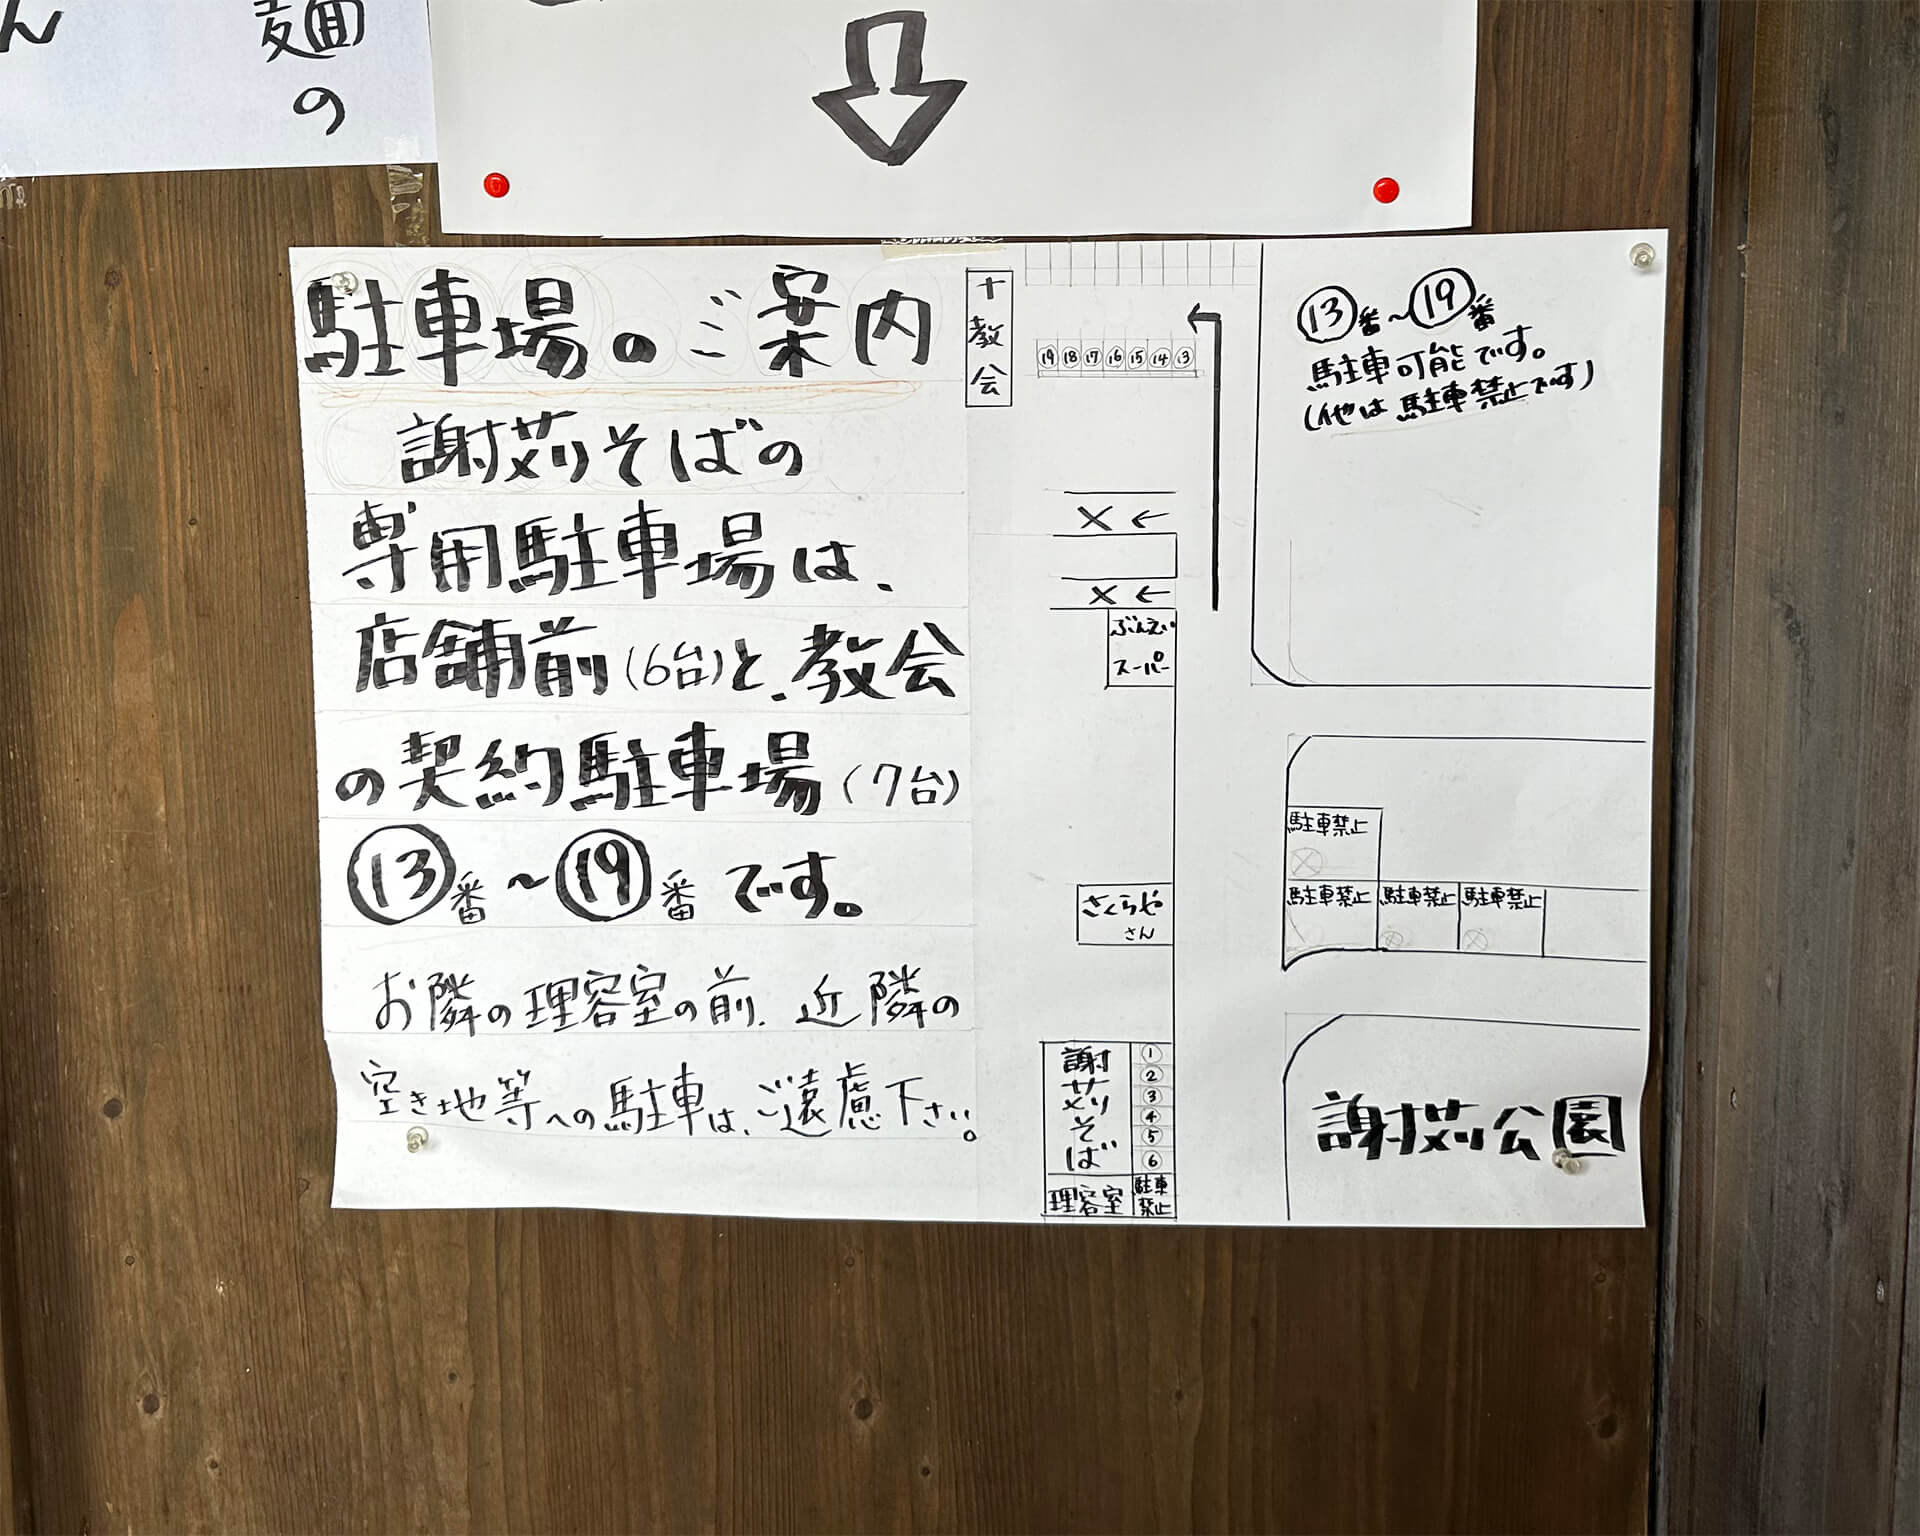 ん
麺の
駐車場のご案内
謝苅そばの
専用駐車場は、
店舗前(6台)と、教会
の契約駐車場(7台)
⑬番〜⑲番です。
お隣の理容室の前、近隣の
空き地等への駐車は、ご遠慮下さい。
十教会
⑲⑱⑰⑯⑮⑭⑬
⑬番〜⑲番
駐車可能です。
(他は駐車禁止です)
×←
×←
ぶんえい
スーパー
さくらや
さん
駐車禁止
駐車禁止 駐車禁止 駐車禁止
謝苅そば
①
②
③
④
⑤
⑥
理容室
駐車
禁止
謝苅公園